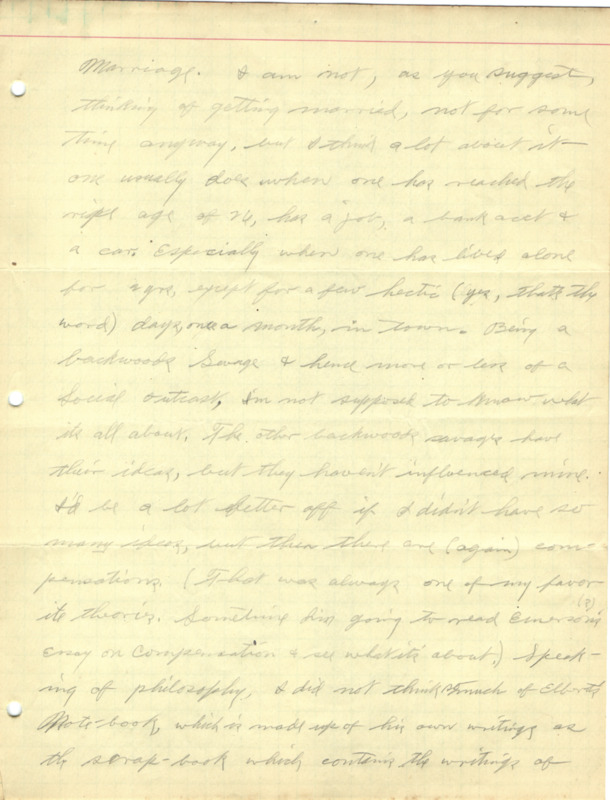 Marriage. I am not, as you suggest,
thinking of getting married, not for some
time anyway, but I think a lot about it
one usually does when one has reached the
ripe age of 26, has a job, a bank acct &
a car. Especially when one has lived alone
for yrs, except for a few hectic (yes, thats the
word) days, once a month, in town. Being a
backwoods savage & hence more or less of a
Social outcast, Im not supposed to know what
its all about. The other backwoods savages have
their ideas, but they haven't influenced mine.
I'd be a lot better off if I didn't have so
many ideas, but then there are (again) com
pensations. (That was always one of my favor
ite theories. Sometime Im going to read Emerson's (?)
Essay on Compensation & see what its about.) Speak-
ing of philosophy, I did not think much of Elberts
Note-book, which is made up of his own writings as
the scrap-book which contains the writings of